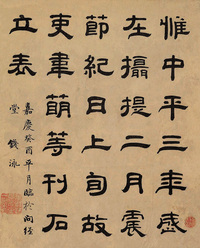 惟中平三年歲
在攝提二月震
節紀日上旬故
吏韋萌等刊石
立表
嘉慶癸酉月臨於經
堂 錢泳